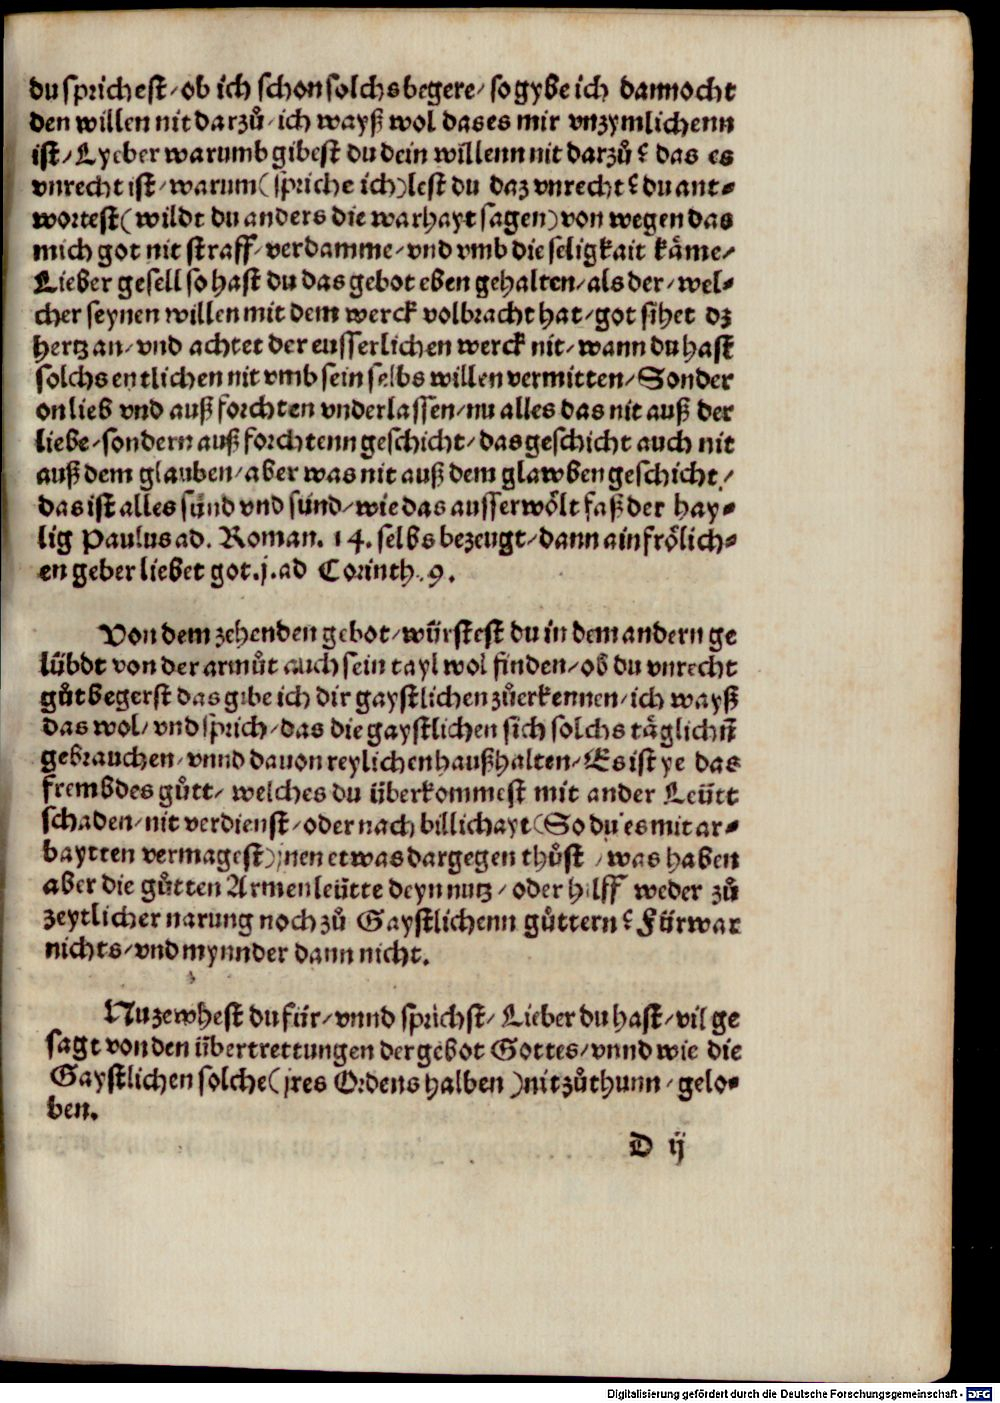 du sprichest/ ob ich schon solchs begere/ so gybe ich dannocht
den willen nit darzuͦ/ ich wayß wol das es mir vnzymlichenn
ist/ Lyeber warumb gibest du dein willenn nit darzuͦ? das es
vnrecht ist/ warum (spriche ich) lest du daz vnrecht? du ant⸗
wortest (wildt du anders die warhayt sagen) von wegen das
mich got nit straff/ verdamme/ vnd vmb die seligkait kaͤme/
Lieber gesell so hast du das gebot eben gehalten/ als der/ wel⸗
cher seynen willen mit dem werck volbracht hat/ got sihet dz
hertz an/ vnd achtet der eusserlichen werck nit/ wann du hast
solchs entlichen nit vmb sein selbs willen vermitten/ Sonder
on lieb vnd auß forchten vnderlassen/ nu alles das nit auß der
liebe/ sondern auß forchtenn geschicht/ das geschicht auch nit
auß dem glauben/ aber was nit auß dem glawben geschicht/
das ist alles sünd vnd sünd/ wie das ausserwoͤlt faß der hay⸗
lig Paulus ad. Roman. 14. selbs bezeugt/ dann ain froͤlich⸗
en geber liebet got. j. ad Corinth. 9.
Von dem zehenden gebot/ würstest du in dem andern ge
lübdt von der armuͦt auch sein tayl wol finden/ ob du vnrecht
guͦt begerst das gibe ich dir gaystlichen zuͦerkennen/ ich wayß
das wol/ vnd sprich/ das die gaystlichen sich solchs taͤglichñ
gebrauchen/ vnnd dauon reylichen haußhalten/ Es ist ye das
frembdes guͦtt/ welches du überkommest mit ander Leütt
schaden/ nit verdienst/ oder nach billichayt (So du es mit ar⸗
baytten vermagest) jnen etwas dargegen thuͦst/ was haben
aber die guͦtten Armen leütte deyn nutz/ oder hilff weder zuͦ
zeytlicher narung noch zuͦ Gaystlichenn guͦttern? Fürwar
nichts/ vnd mynnder dann nicht.
Nu zewhest du für/ vnnd sprichst/ Lieber du hast/ vil ge
sagt von den übertrettungen der gebot Gottes/ vnnd wie die
Gaystlichen solche (jres Ordens halben) nit zuͦthunn/ gelo⸗
ben.
D ij
Digitalisierung gefördert durch die Deutsche Forschungsgemeinschaft - DFG